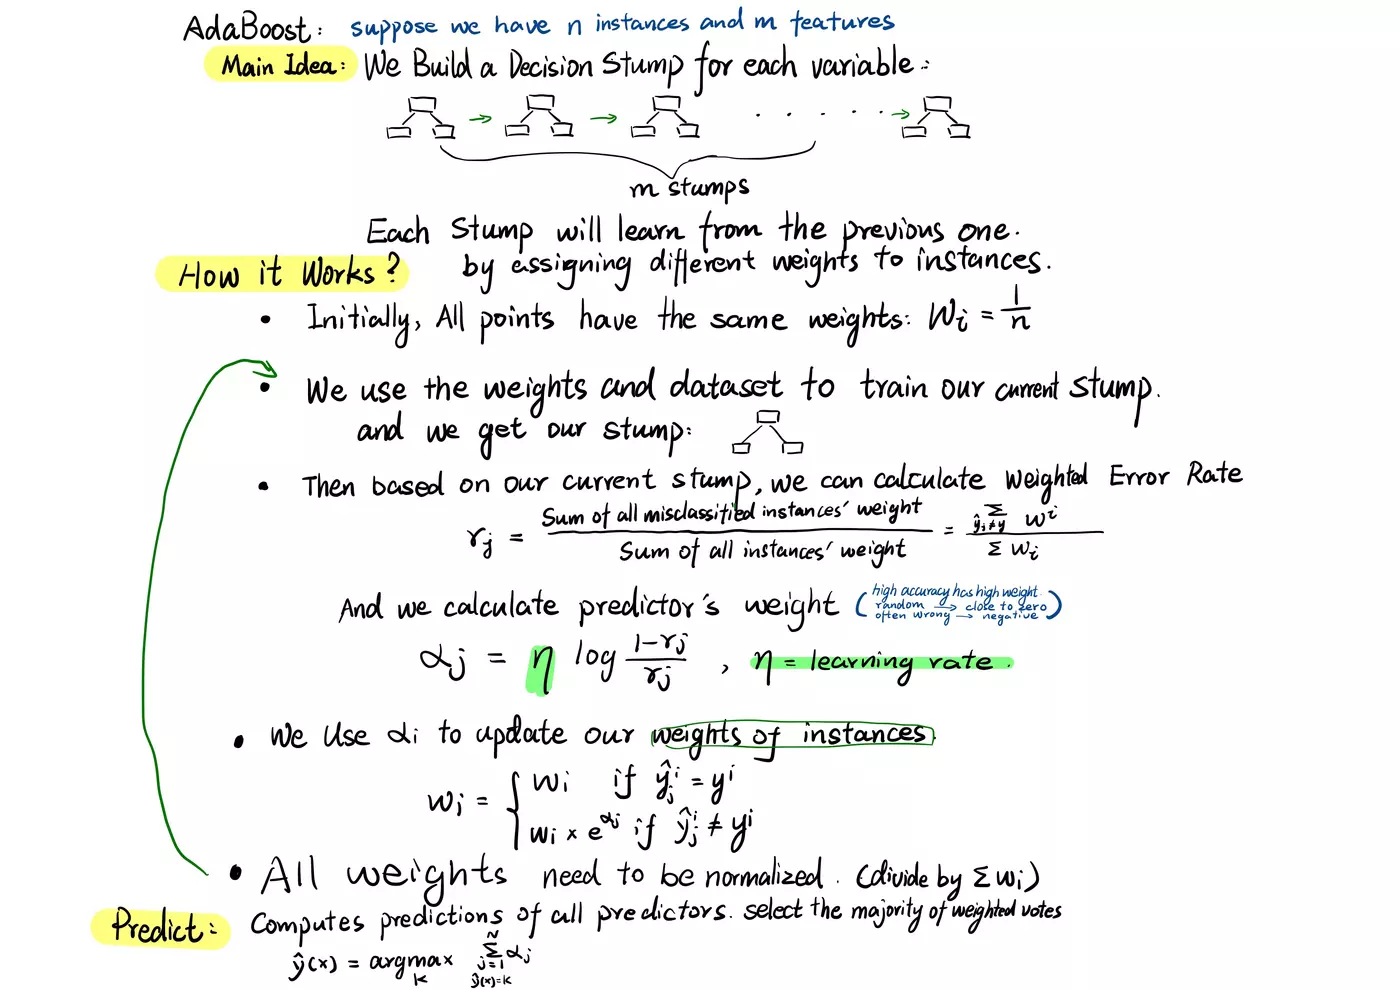 AdaBoost: suppose we have n instances and m features
Main Idea: We Build a Decision Stump for each variable:
m stumps
Each Stump will learn from the previous one.
by assigning different weights to instances.
How it Works?
• Initially, All points have the same weights: Wi = 1/n
• We use the weights and dataset to train our current stump.
and we get our stump:
• Then based on our current stump, we can calculate Weighted Error Rate
rj = Sum of all misclassified instances' weight / Sum of all instances' weight = Σ ŷi≠y wi / Σ wi
And we calculate predictor's weight (high accuracy has high weight.
random → close to zero
often wrong → negative)
αj = η log 1-rj / rj , η = learning rate.
• We Use αi to update our weights of instances.
wi = { wi if ŷji = yi
wi × e^αj if ŷji ≠ yi
• All weights need to be normalized. (divide by Σwi)
Predict: Computes predictions of all predictors. select the majority of weighted votes
ŷ(x) = argmax k Σ N j=1 ŷ(x)=k αj